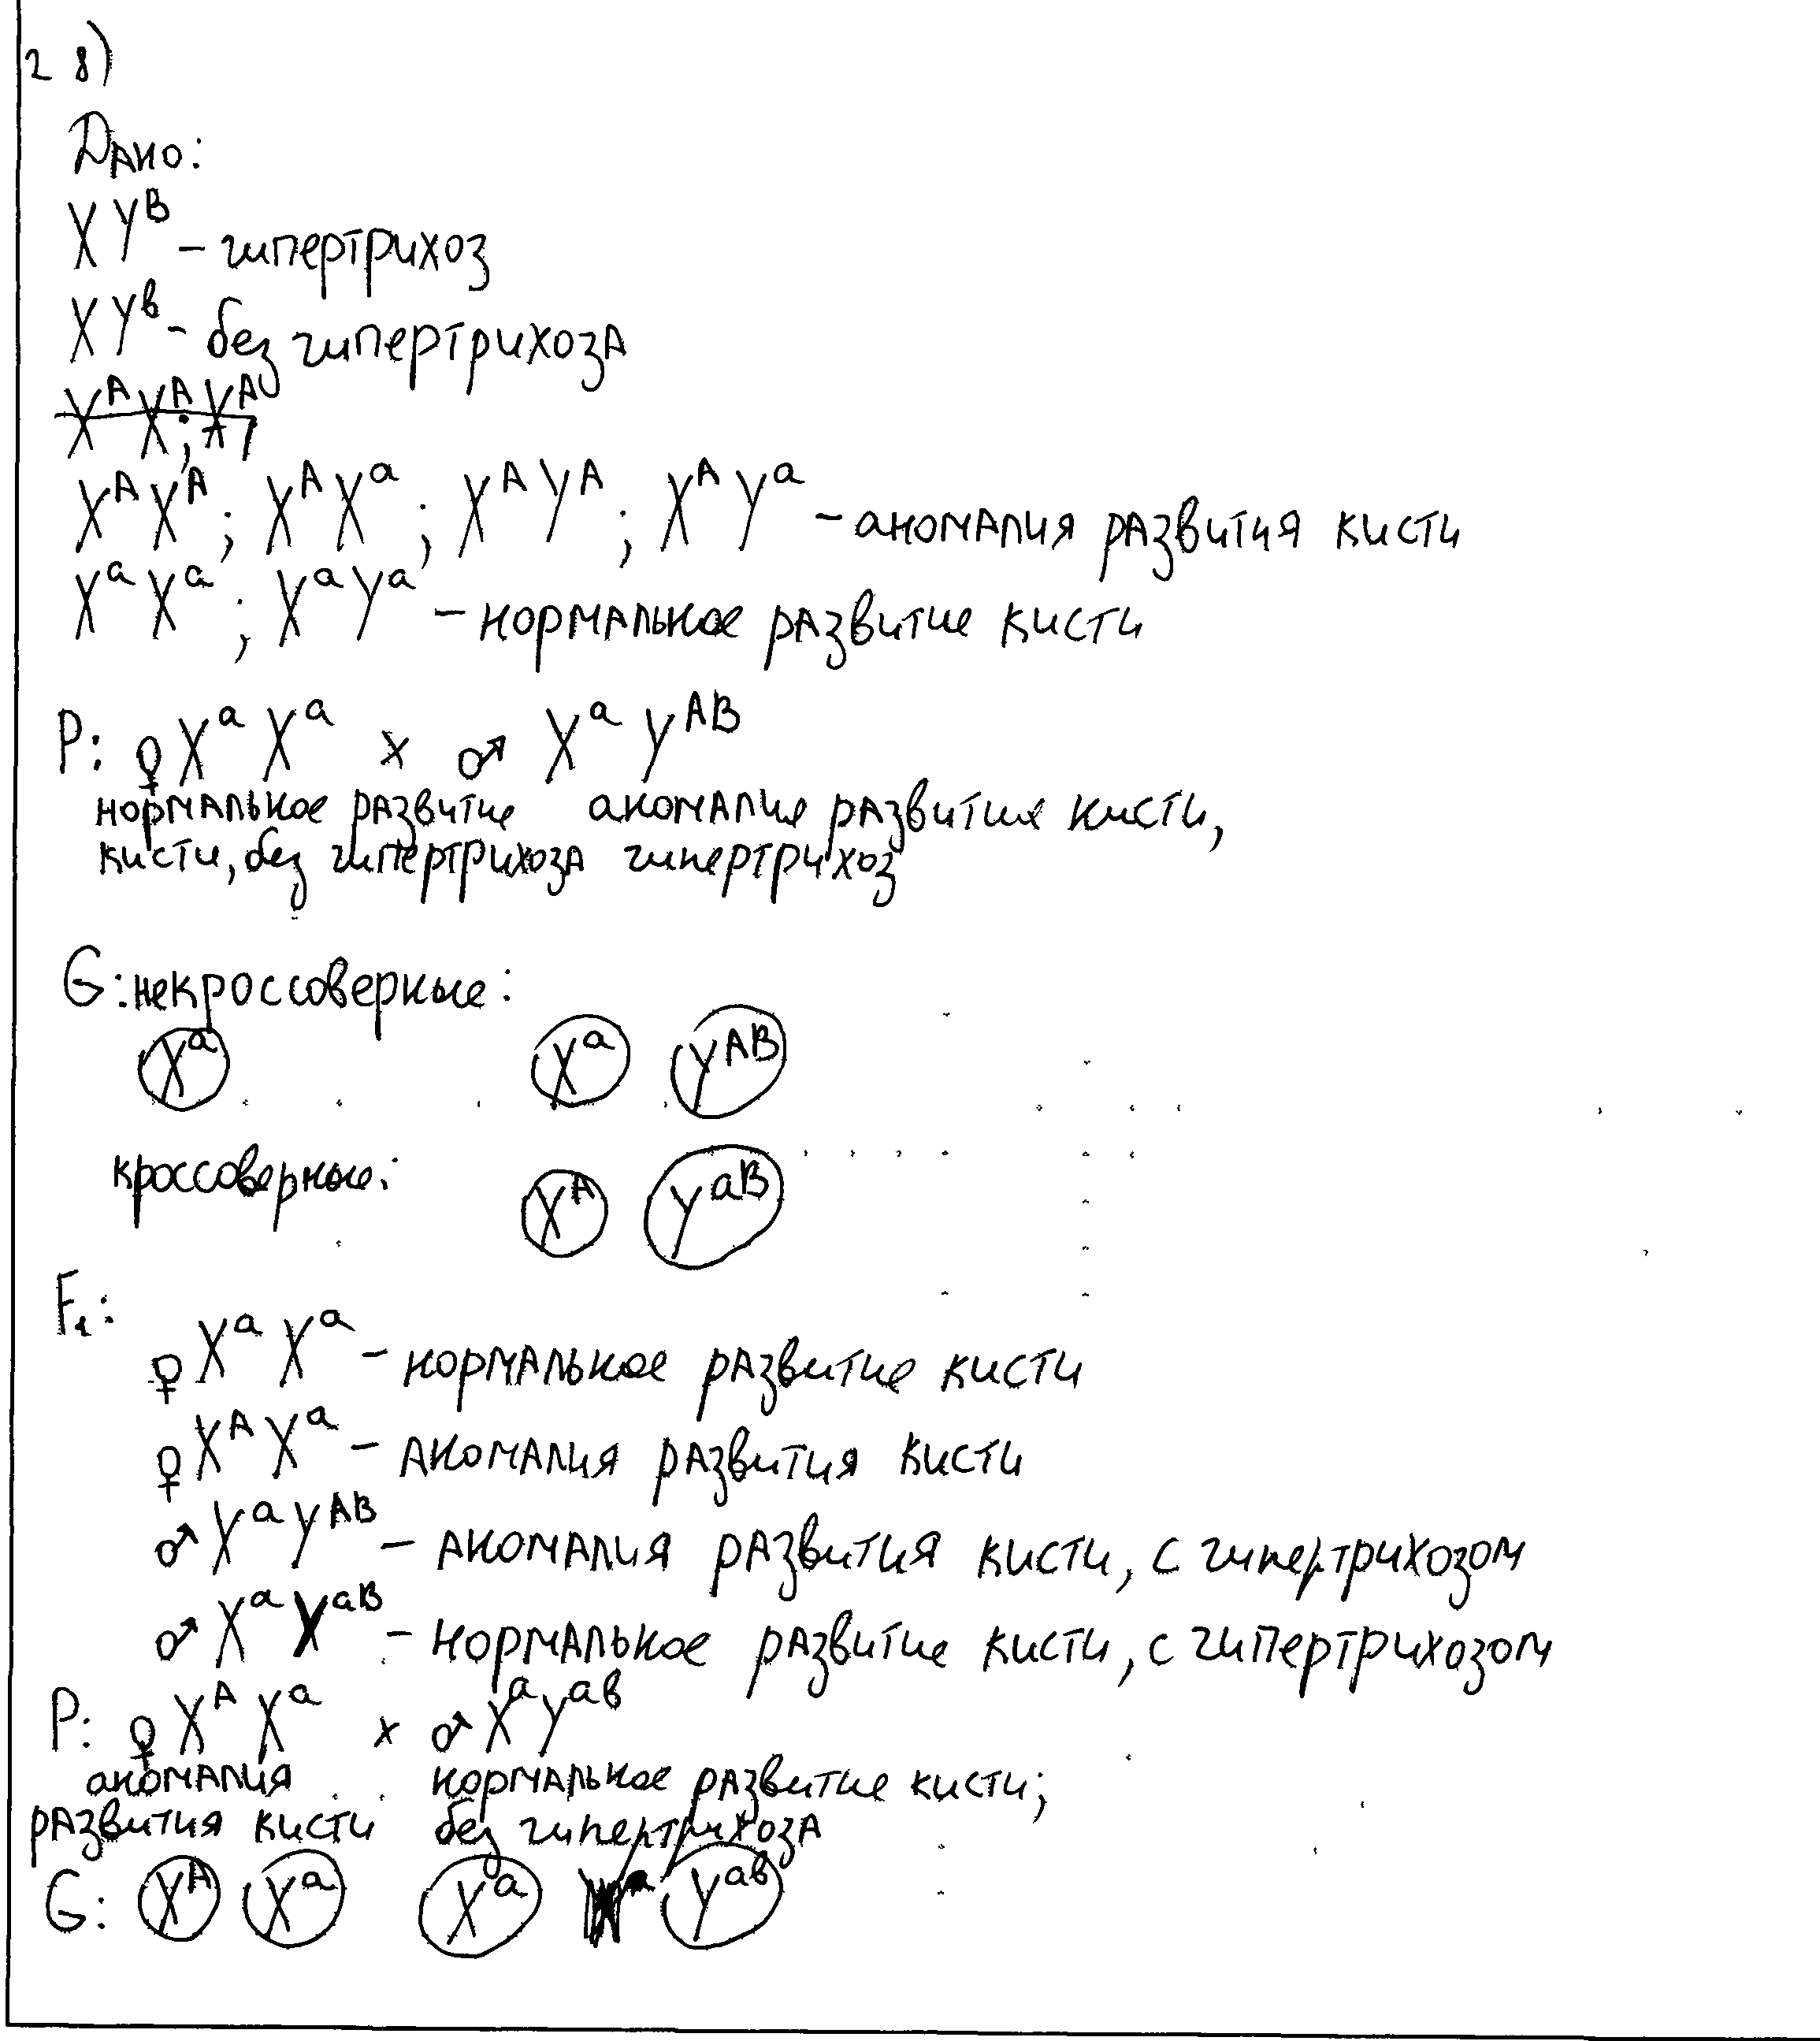 28)
Дано:
XYᴮ – гипертрихоз
XYᵇ – без гипертрихоза
XᴬXᴬ; XᴬXᵃ; XᴬYᴬ; XᴬYᵃ – аномалия развития кисти
XᵃXᵃ; XᵃYᵃ – нормальное развитие кисти
P: ♀ XᵃXᵃ x ♂ XᵃYᴬᴮ
нормальное развитие аномалия развития кисти,
кисти, без гипертрихоза гипертрихоз
G: некроссоверные:
Xᵃ Xᵃ Yᴬᴮ
кроссоверные:
Xᴬ Yᵃᴮ
F₁:
♀ XᵃXᵃ – нормальное развитие кисти
♀ XᴬXᵃ – аномалия развития кисти
♂ XᵃYᴬᴮ – аномалия развития кисти, с гипертрихозом
♂ XᵃYᵃᴮ – нормальное развитие кисти, с гипертрихозом
P: ♀ XᴬXᵃ x ♂ XᵃYᵃᵇ
аномалия нормальное развитие кисти;
развития кисти без гипертрихоза
G: Xᴬ Xᵃ Xᵃ Yᵃᵇ